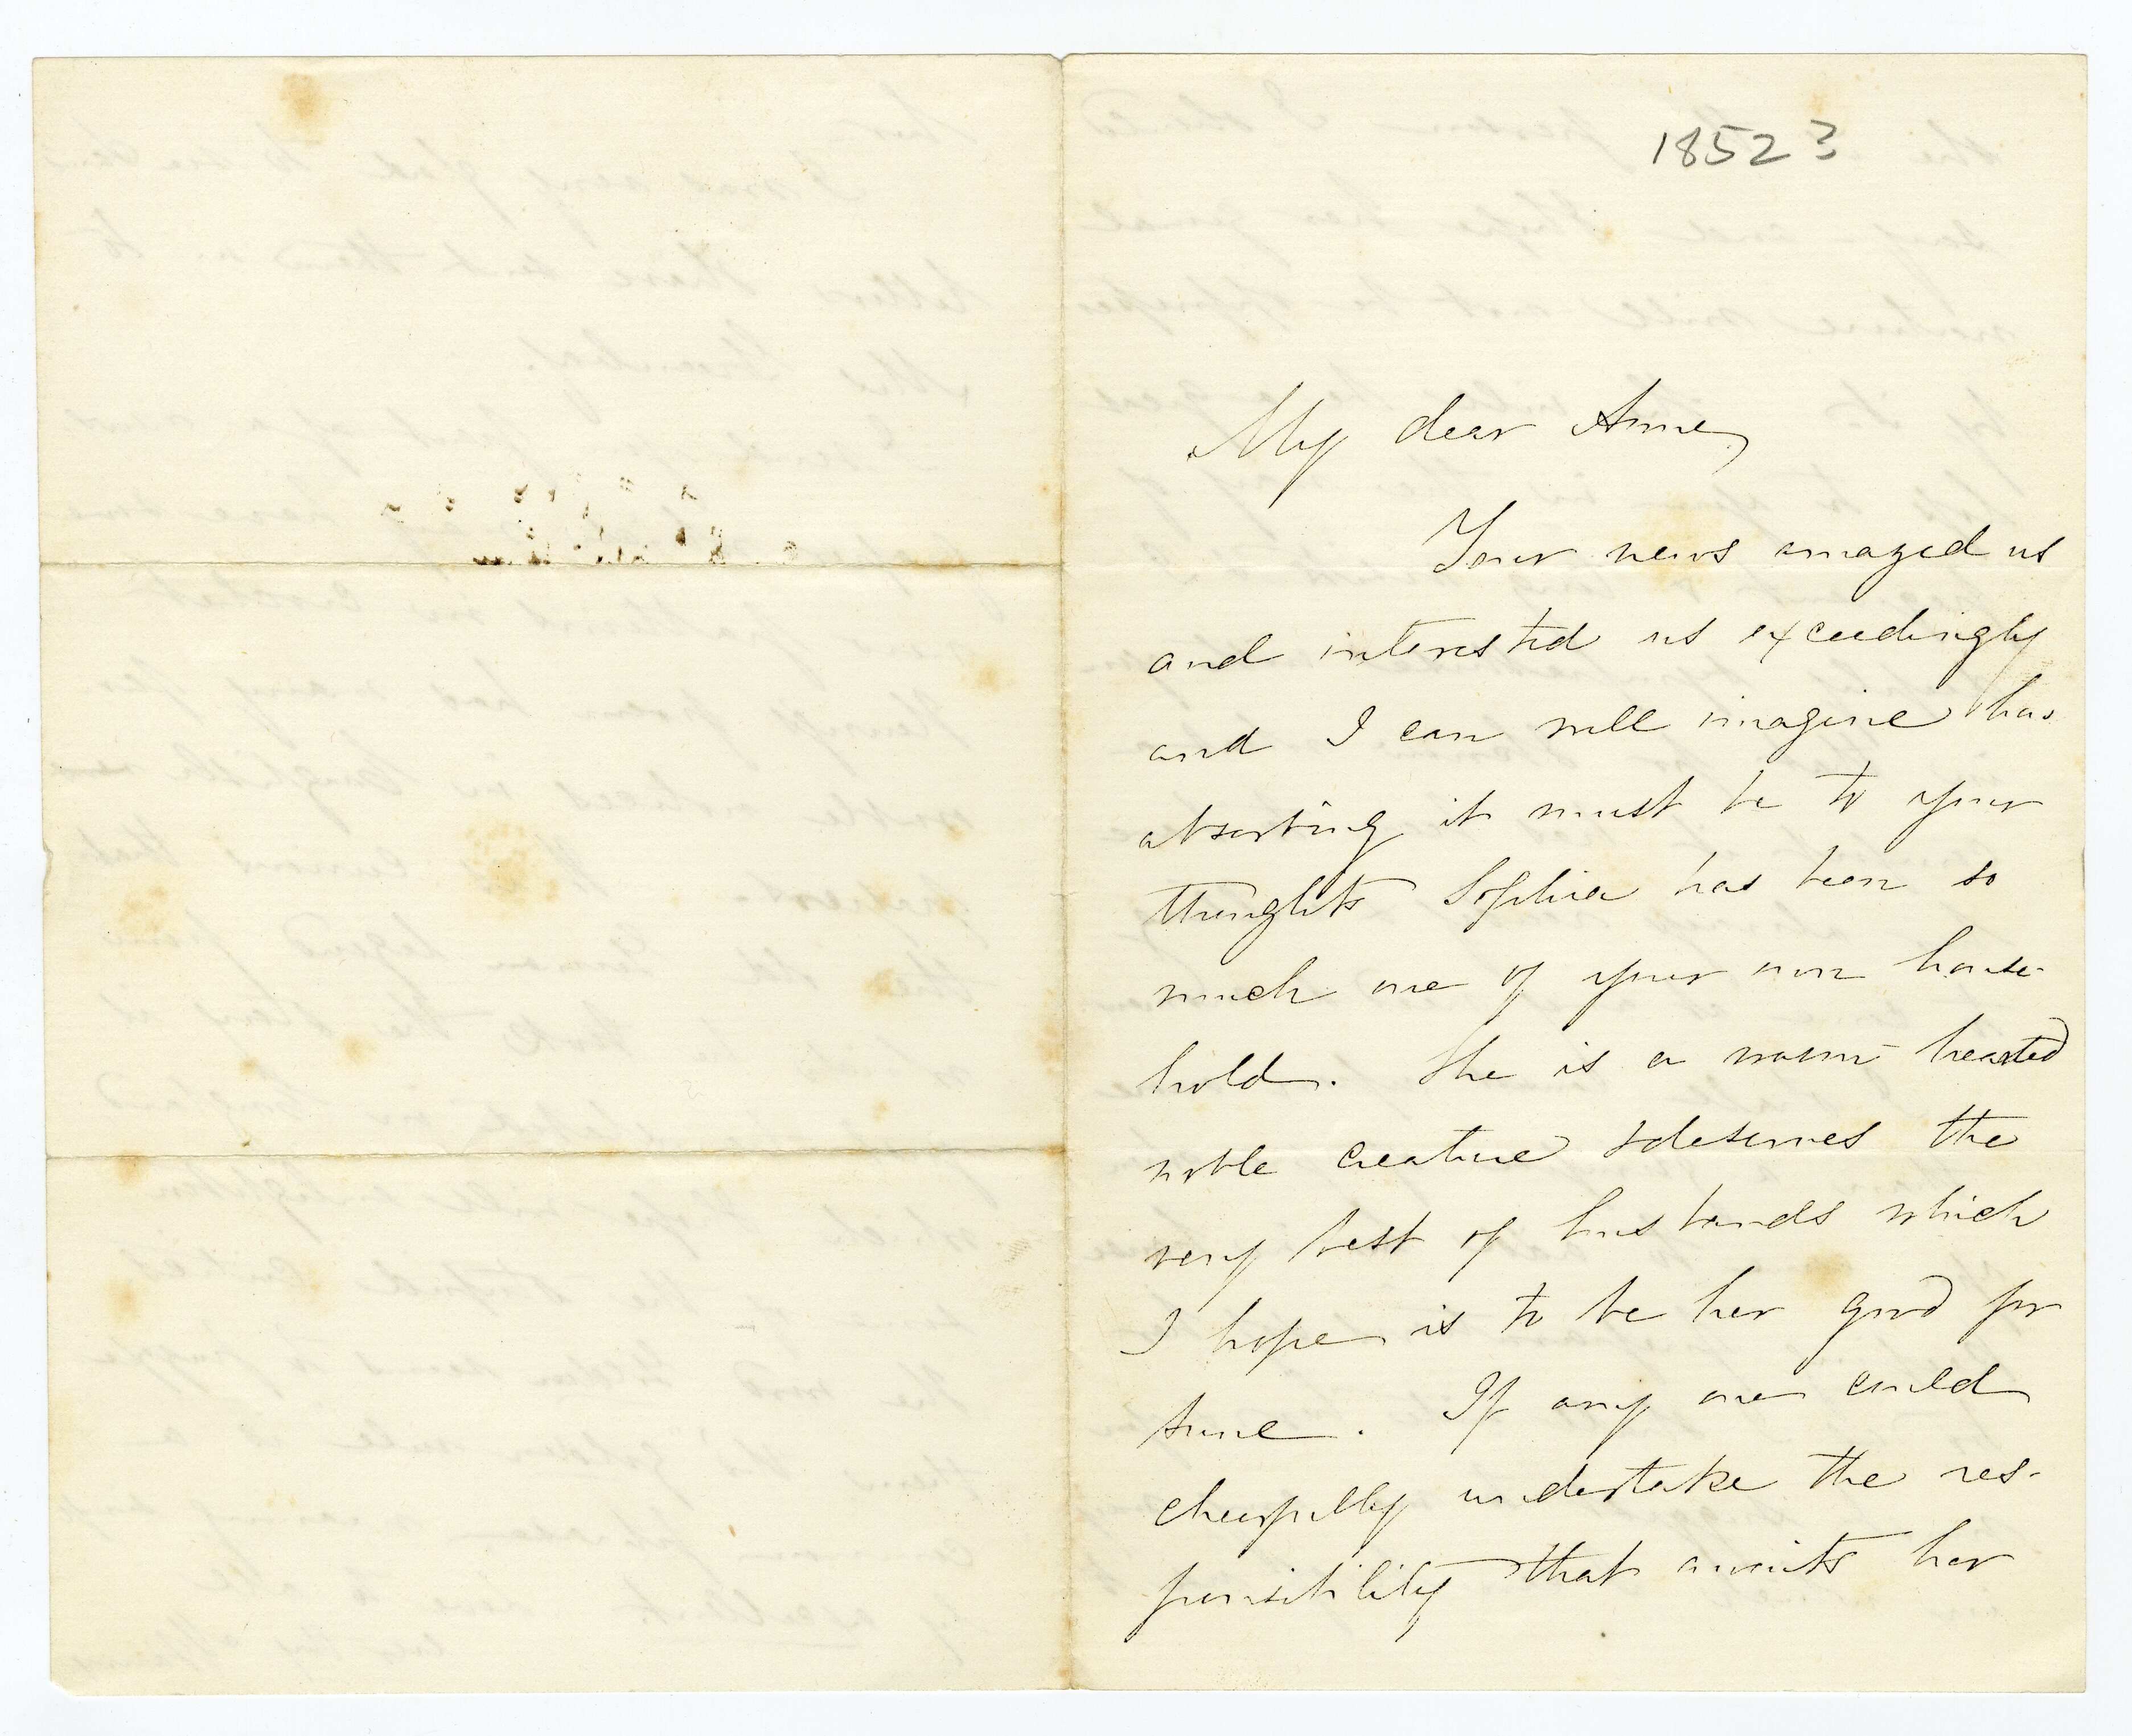 1852?
My dear Anne,
Your news amazed us
and interested us exceedingly
and I can well imagine how
absorbing it must be to your
thoughts Sophia has been so
much one of your own house-
hold. She is a warm-hearted
noble creature & deserves the
very best of husbands which
I hope is to be her good for
tune. If any one could
cheerfully undertake the res-
ponsibility that awaits her